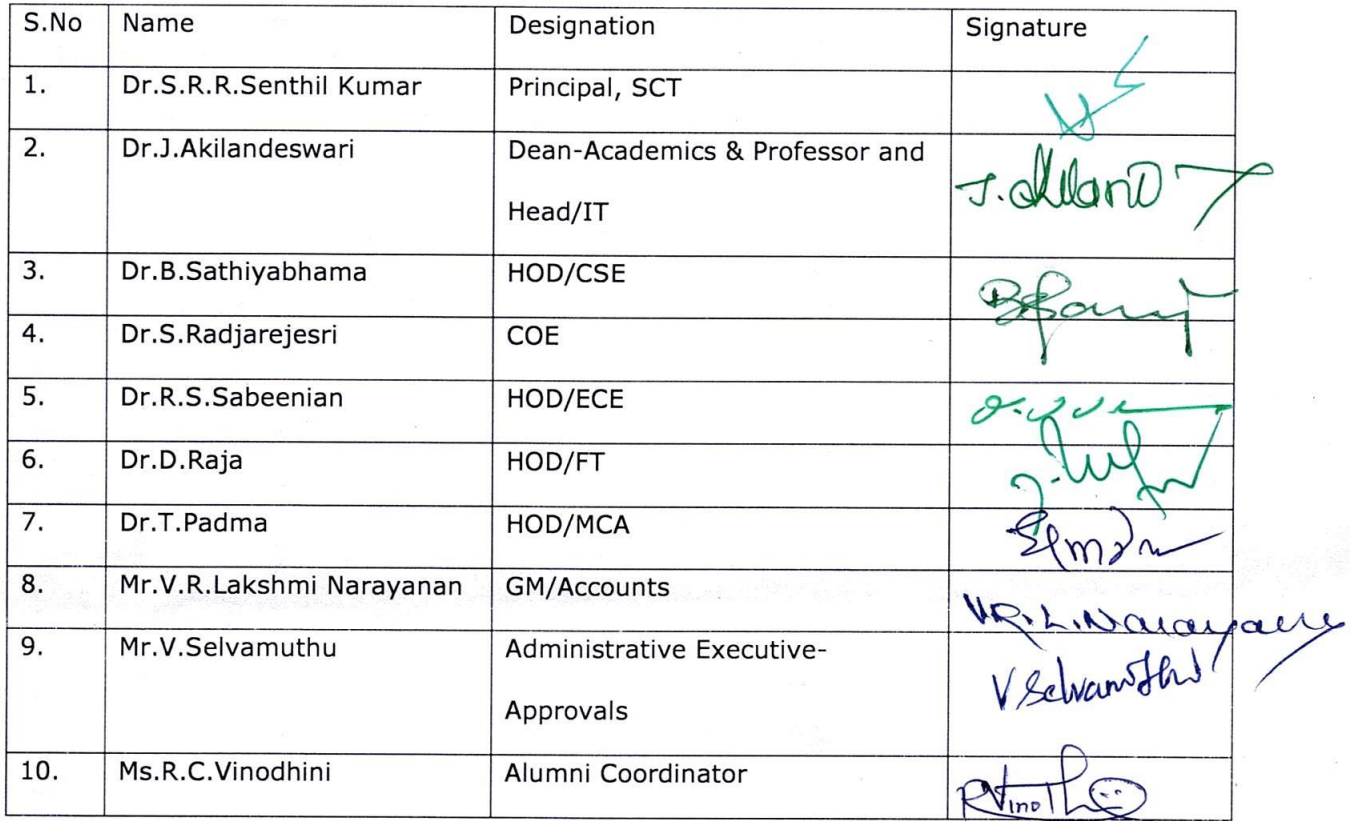 S.No Name Designation Signature
1. Dr.S.R.R.Senthil Kumar Principal, SCT
2. Dr.J.Akilandeswari Dean-Academics & Professor and
Head/IT
3. Dr.B.Sathiyabhama HOD/CSE
4. Dr.S.Radjarejesri COE
5. Dr.R.S.Sabeenian HOD/ECE
6. Dr.D.Raja HOD/FT
7. Dr.T.Padma HOD/MCA
8. Mr.V.R.Lakshmi Narayanan GM/Accounts
V.R.L.Narayanan
9. Mr.V.Selvamuthu Administrative Executive-
V Selvamuthu
Approvals
10. Ms.R.C.Vinodhini Alumni Coordinator